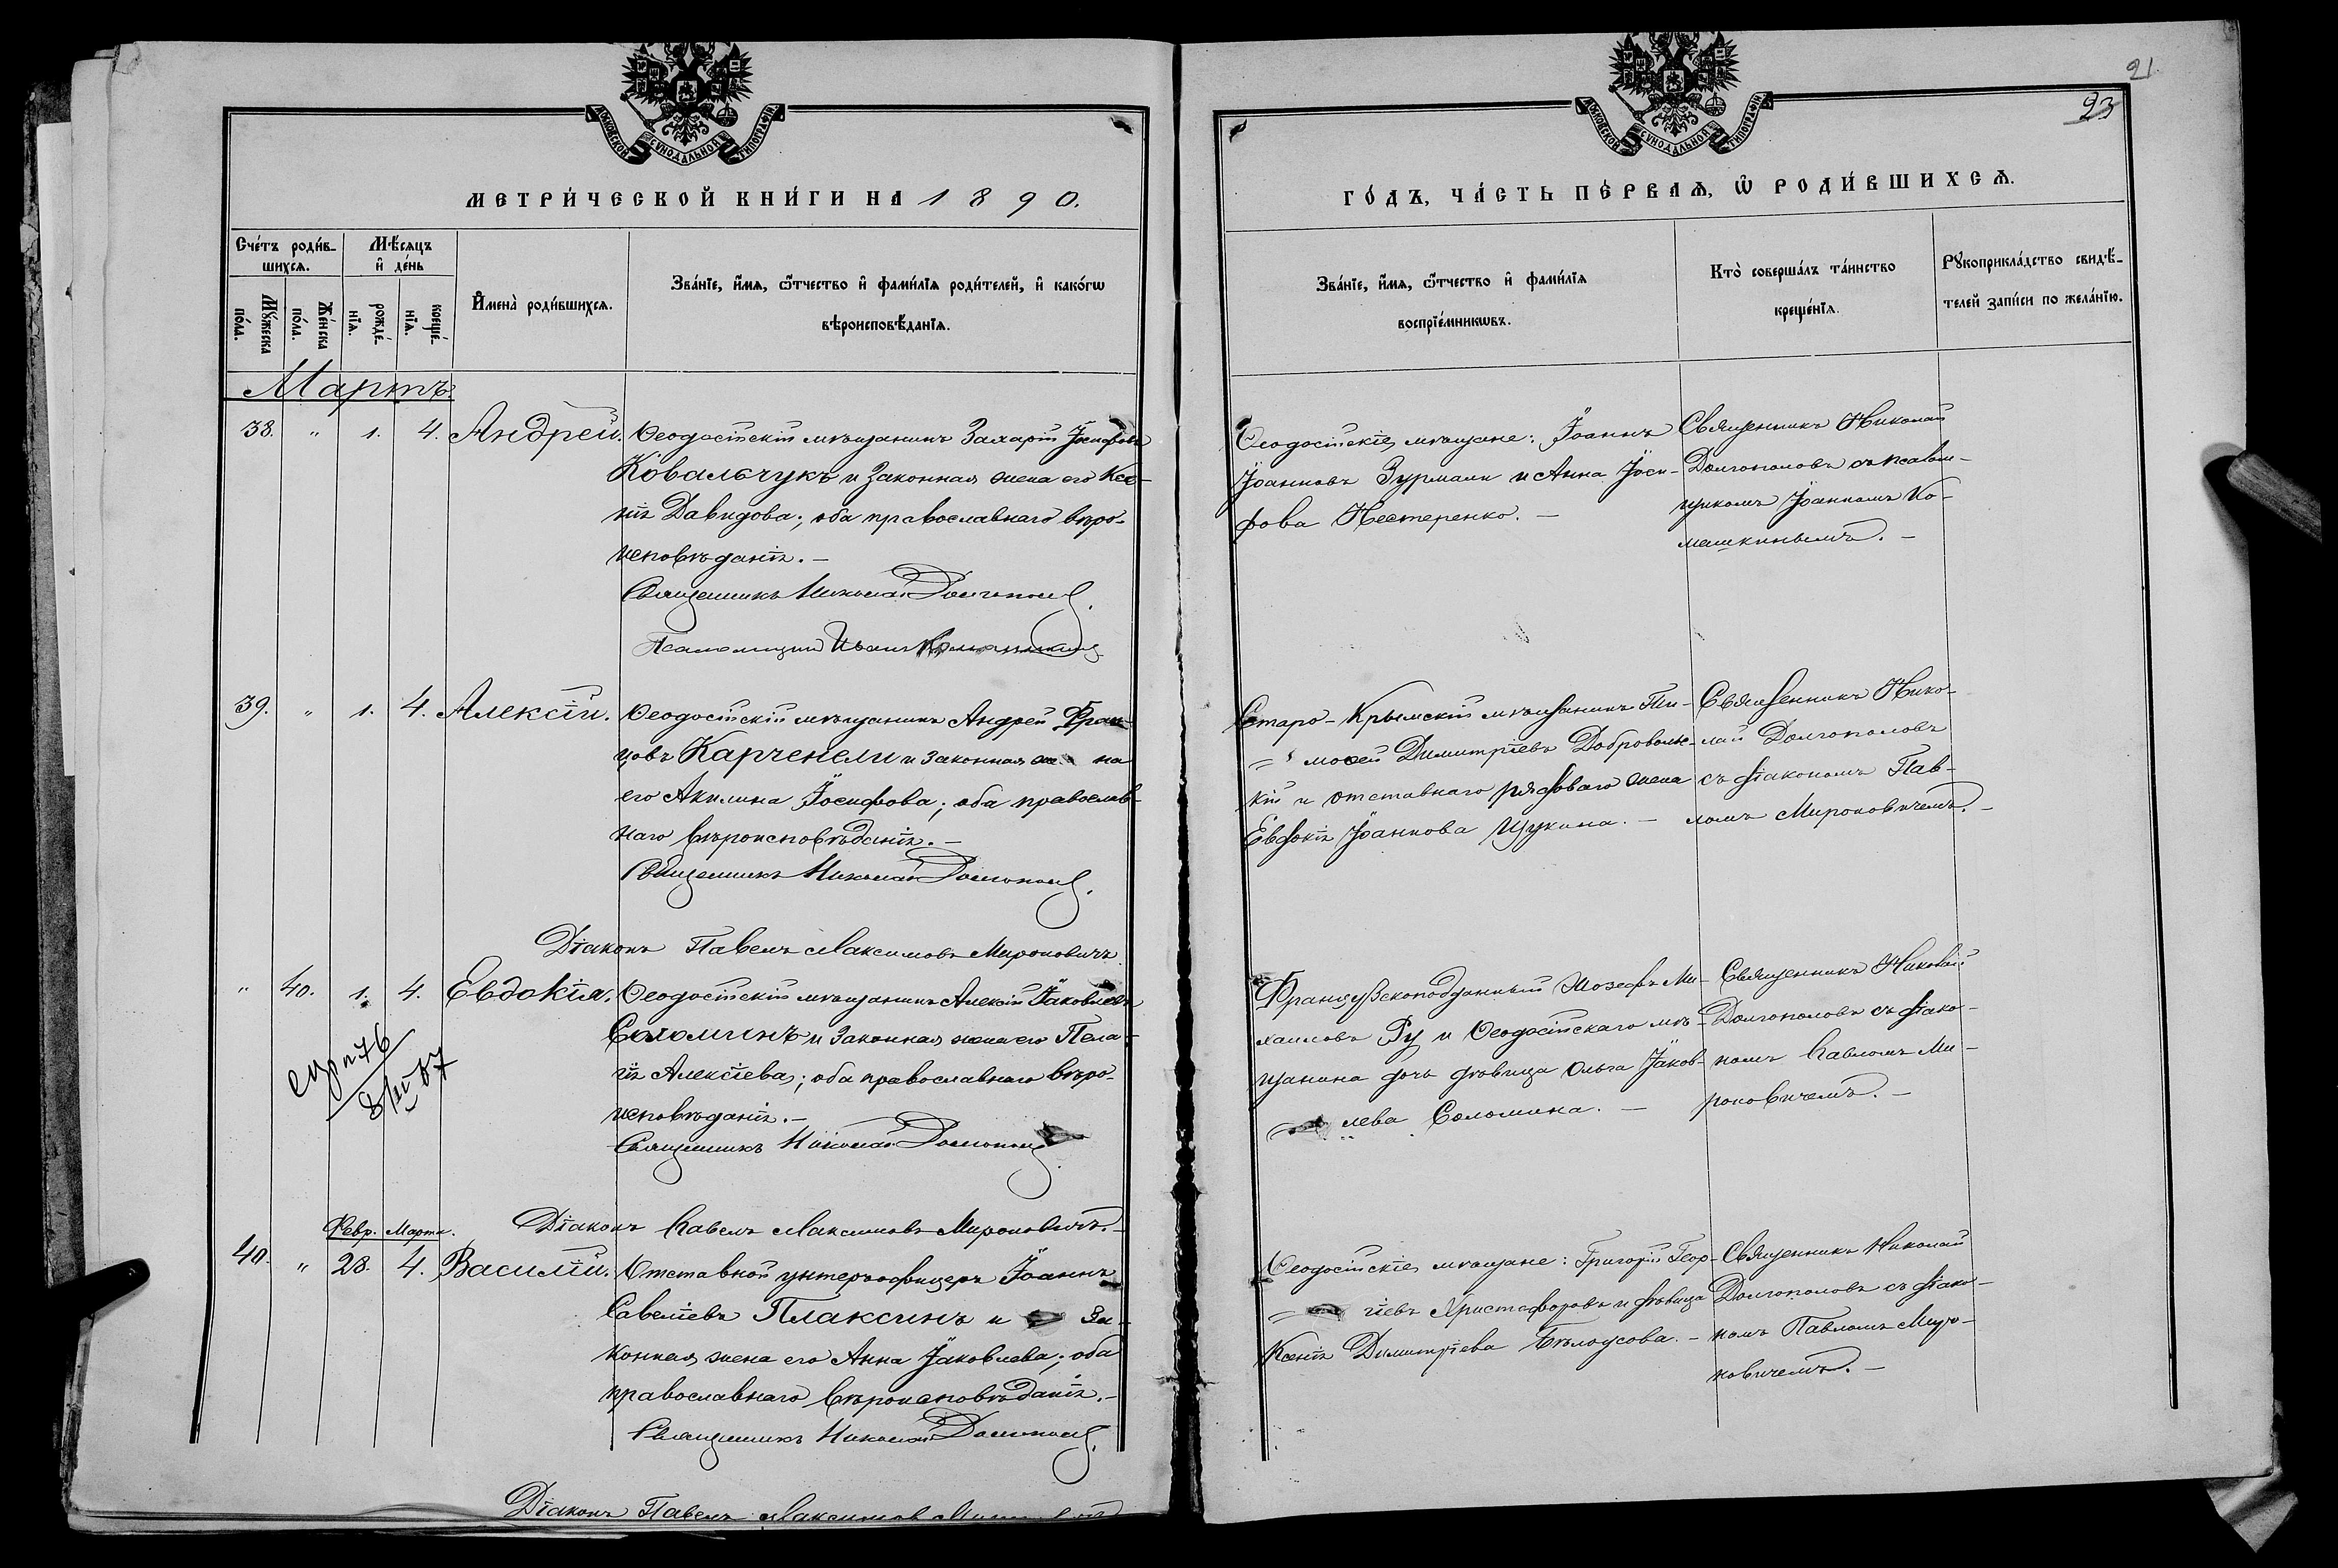 МОСКОВСКОЙ СѴНОДАЛЬНОЙ ТИПОГРАФІИ
МЕТРИ́ЧЕСКОЙ КНИ́ГИ НА 1890.
Сче́тъ роди́в-
шихсѧ.
Мѣ́сѧцъ
и҆ де́нь
Мꙋ́жеска
по́ла.
Же́нска
по́ла.
рожде́-
нїѧ.
креще́-
нїѧ.
И҆мена̀ роди́вшихсѧ.
Зва́нїе, и҆́мѧ, ѻ҆́тчество и҆ фами́лїѧ роди́телей, и҆ како́гѡ
вѣроисповѣ́данїѧ.
Мартъ.
38. " 1. 4. Андрей. Ѳеодосійскій мѣщанинъ Захарій Іосифовъ
Ковальчукъ и законная жена его Ксе-
нія Давидова; оба православнаго вѣро-
исповѣданія.—
Священникъ Николай Долгополовъ.
Псаломщикъ Иванъ Комашкинъ
39. " 1. 4. Алексій. Ѳеодосійскій мѣщанинъ Андрей Фран-
цовъ Карченели и законная жена
его Акилина Іосифова; оба православ-
наго вѣроисповѣданія.—
Священникъ Николай Долгополовъ.
Діаконъ Павелъ Максимовъ Мироновичъ.
" 40. 1. 4. Евдокія. Ѳеодосійскій мѣщанинъ Алексій Іаковлевъ
Соломинъ и законная жена его Пела-
гія Алексіева; оба православнаго вѣро-
исповѣданія.—
Священникъ Николай Долгополовъ.
Діаконъ Павелъ Максимовъ Мироновичъ.—
Февр. Марта.
40. " 28. 4. Василій. Отставной унтеръ-офицеръ Іоаннъ
Савеліевъ Плаксинъ и за-
конная жена его Анна Іаковлева; оба
православнаго вѣроисповѣданія.—
Священникъ Николай Долгополовъ.
Діаконъ Павелъ Максимовъ Мироновичъ
21.
23
ГО́ДЪ, ЧА́СТЬ ПЕ́РВАѦ, Ѡ҆ РОДИ́ВШИХСѦ.
Зва́нїе, и҆́мѧ, ѻ҆́тчество и҆ фами́лїѧ
воспрїе́мникѡвъ.
Кто̀ соверша́лъ та́инство
креще́нїѧ.
Рꙋкоприкла́дство свидѣ́-
телей за́писи по жела́нїю.
Ѳеодосійскіе мѣщане: Іоаннъ
Іоанновъ Зурмали и Анна Іоси-
фова Нестеренко.—
Священникъ Николай
Долгополовъ съ псалом-
щикомъ Іоанномъ Ко-
машкинымъ.—
Старо-Крымскій мѣщанинъ Ти-
моѳей Димитріевъ Доброволь-
кій и отставнаго рядоваго жена
Евдокія Іоаннова Щукина.—
Священникъ Нико-
лай Долгополовъ
съ діакономъ Пав-
ломъ Мироновичемъ.—
Французскоподданный Жозефъ Ми-
хаиловъ Ру и Ѳеодосійскаго мѣ-
щанина дочь дѣвица Ольга Іаков-
лева Соломина.—
Священникъ Николай
Долгополовъ съ діако-
номъ Павломъ Ми-
роновичемъ.—
Ѳеодосійскіе мѣщане: Григорій Геор-
гіевъ Христофоровъ и дѣвица
Ксенія Димитріева Бѣлоусова.—
Священникъ Николай
Долгополовъ съ діако-
номъ Павломъ Миро-
новичемъ.—